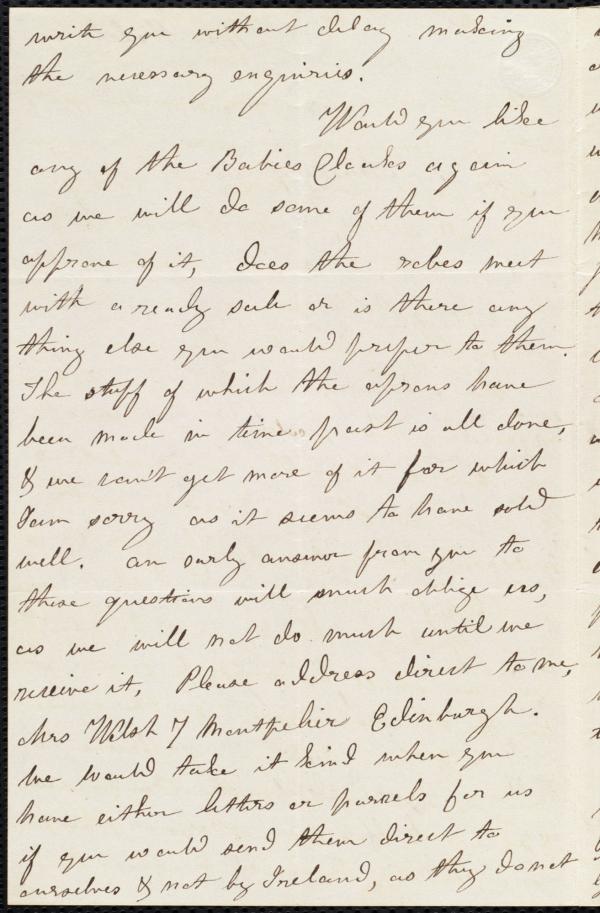 write you without delay making
the necessary enquiries.
Would you like
any of the Babies Cloaks again
as we will do some of them if you
approve of it, does the robes meet
with a ready sale or is there any
thing else you would prefer to them.
The stuff of which the aprons have
been made in time past is all done,
& we can't get more of it for which
I am sorry as it seems to have sold
well. an early answer from you to
these questions will much oblige us,
as we will not do much until we
receive it, Please address direct to me,
Mrs Welsh 7 Montpelier Edinburgh.
We would take it kind when you
have either letters or parcels for us
if you would send them direct to
ourselves & not by Ireland, as they do not